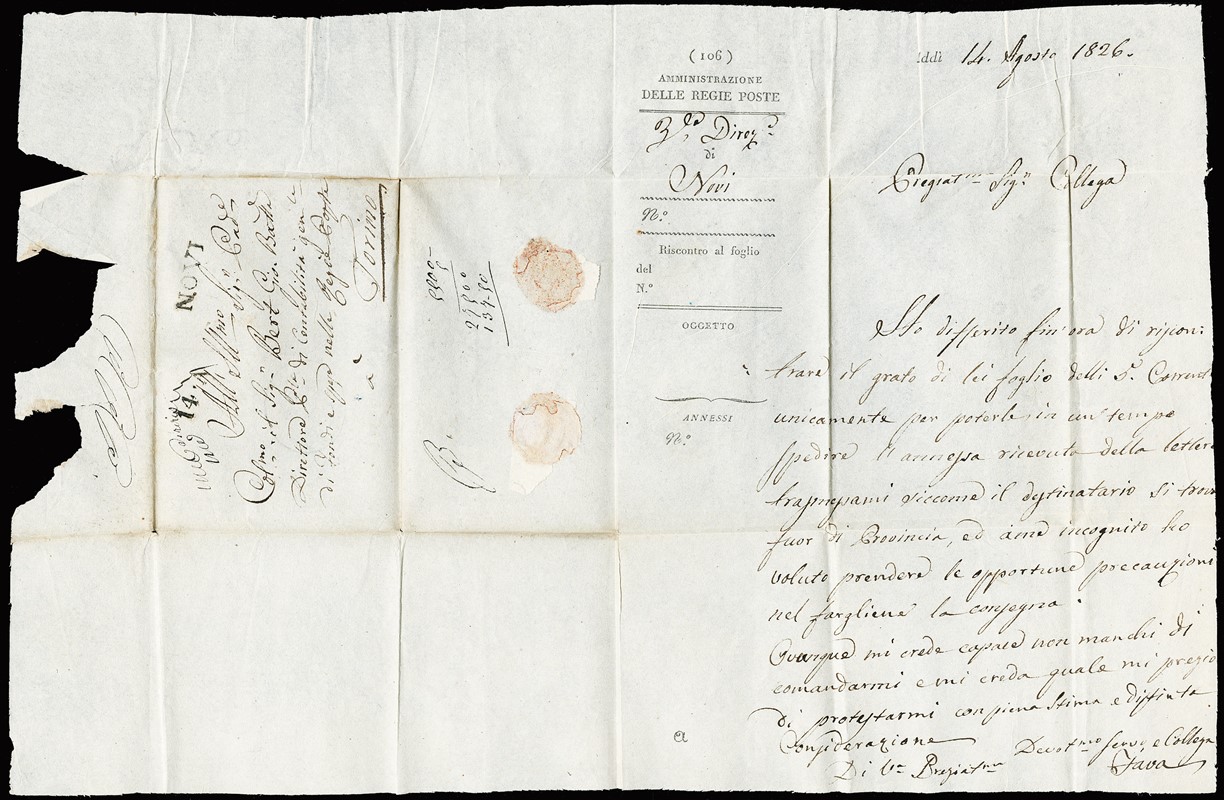 (106)
AMMINISTRAZIONE
DELLE REGIE POSTE
di
Novi
N.º
Riscontro al foglio
del
N.º
OGGETTO
ANNESSI
N.º
a
ddì 14. Agosto 1826.
Pregiat.mo Sig.r Collega
Ho differito fin'ora di riscon:
trare il grato di lei foglio delli 5. Corrente
unicamente per poterle in un tempo
spedire l'annessa ricevuta della lettera
trasmessami siccome il destinatario si trova
fuor di Provincia, ed àme incognito ho
voluto prendere le opportune precauzioni
nel fargliene la consegna.
Ovunque mi crede capace non manchi di
comandarmi e mi creda quale mi pregio
di protestarmi con piena stima e distinta
Considerazione
Di V.ra Pregiat.ma Devot.mo servo e Collega
Fava
NOVI
14
All' Ill.mo Sig.r
Col.mo il Sig.r Bert Gio. Batta
Direttore di Contabilità gen.le
di fondi e spese nelle Regie Poste
à
Torino